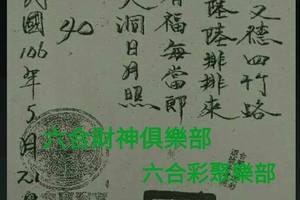 又德四竹路
陸陸排排來
有福每當郎
天洞日月照
40
民國106年5月21日
六合財神俱樂部
六合彩聚樂部